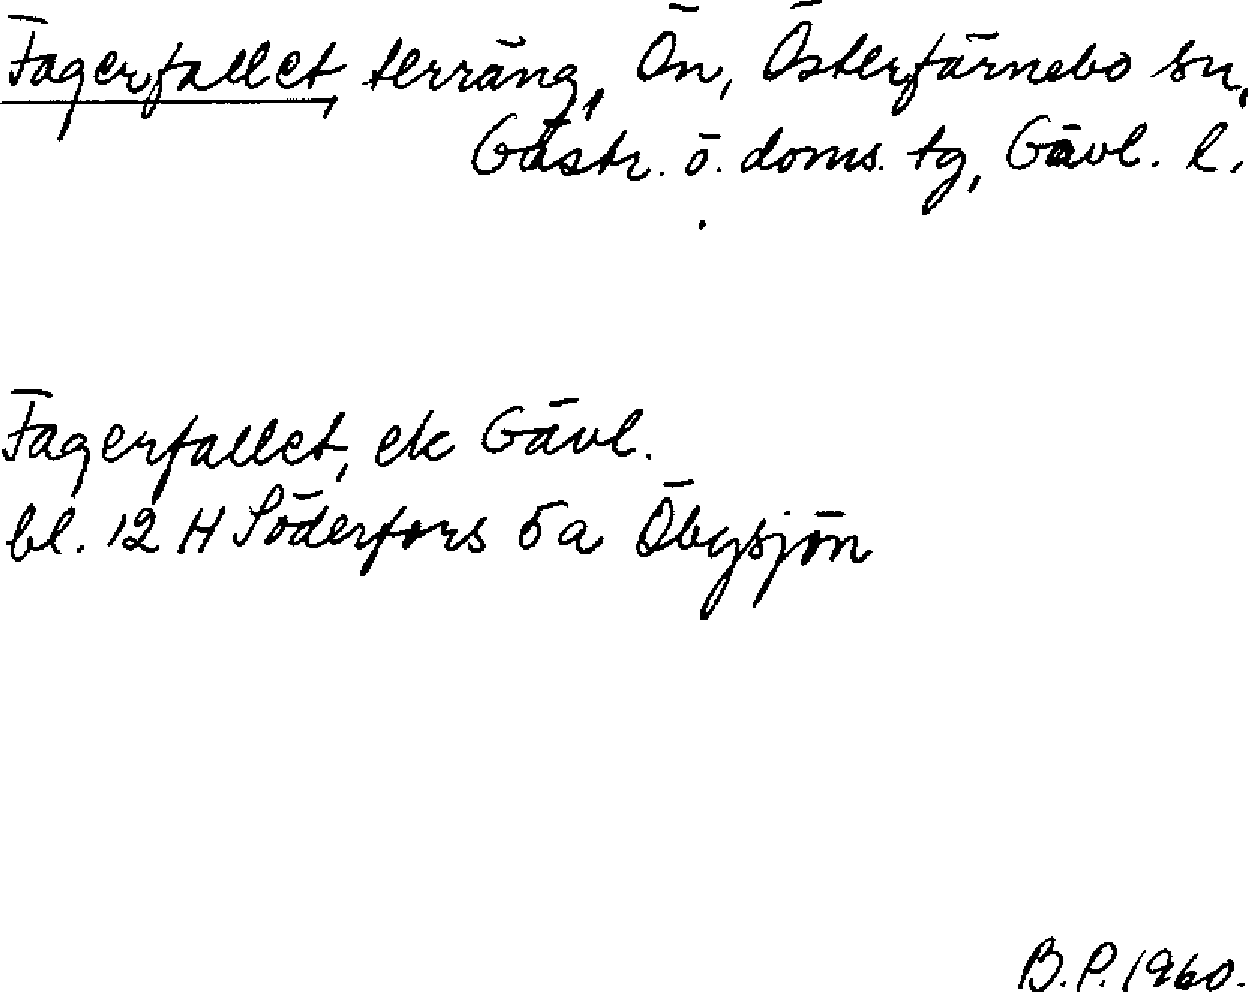 Fagerfallet, terräng, Ön, Österfärnebo sn,
Gästr. ö. doms. tg, Gävl. l.
Fagerfallet, ek Gävl.
bl. 12 H Söderfors 5a Öbysjön
B.P. 1960.